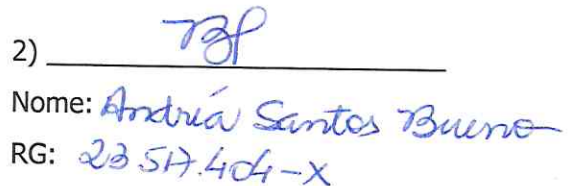 2)
Nome: Andréa Santos Bueno
RG: 23.517.404-X